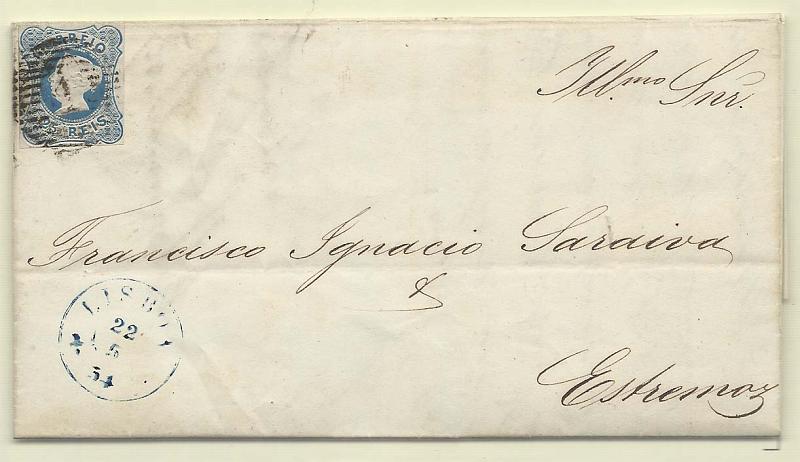 CORREIO
25 REIS
Ill.mo Snr.
Francisco Ignacio Saraiva
&
Estremoz
LISBOA
22
5
54